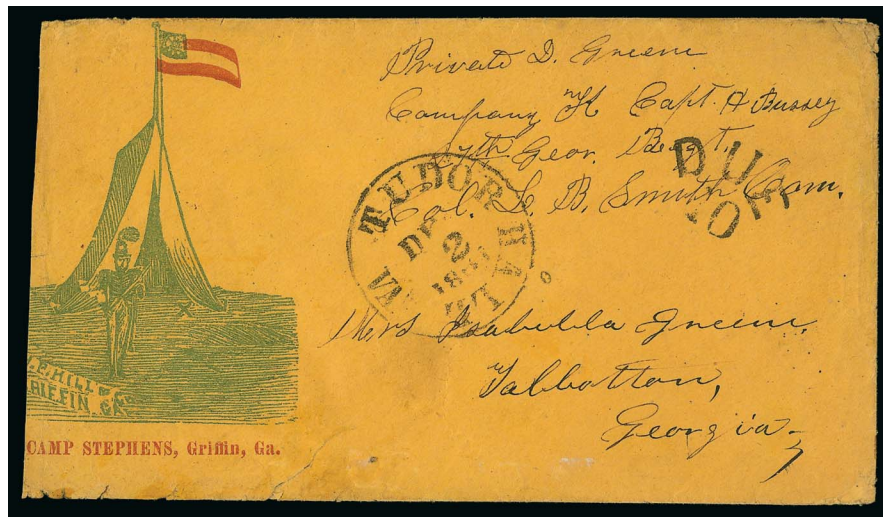 Private D. Green
Company K Capt. H Bussey
27th Geor. Regt.
Col. L. B. Smith Com.
DUE
10
TUDOR HALL
DEC
2
186
VA
Mrs Isabella Green.
Talbotton,
Georgia
HILL &
GRIFFIN, GA.
CAMP STEPHENS, Griffin, Ga.